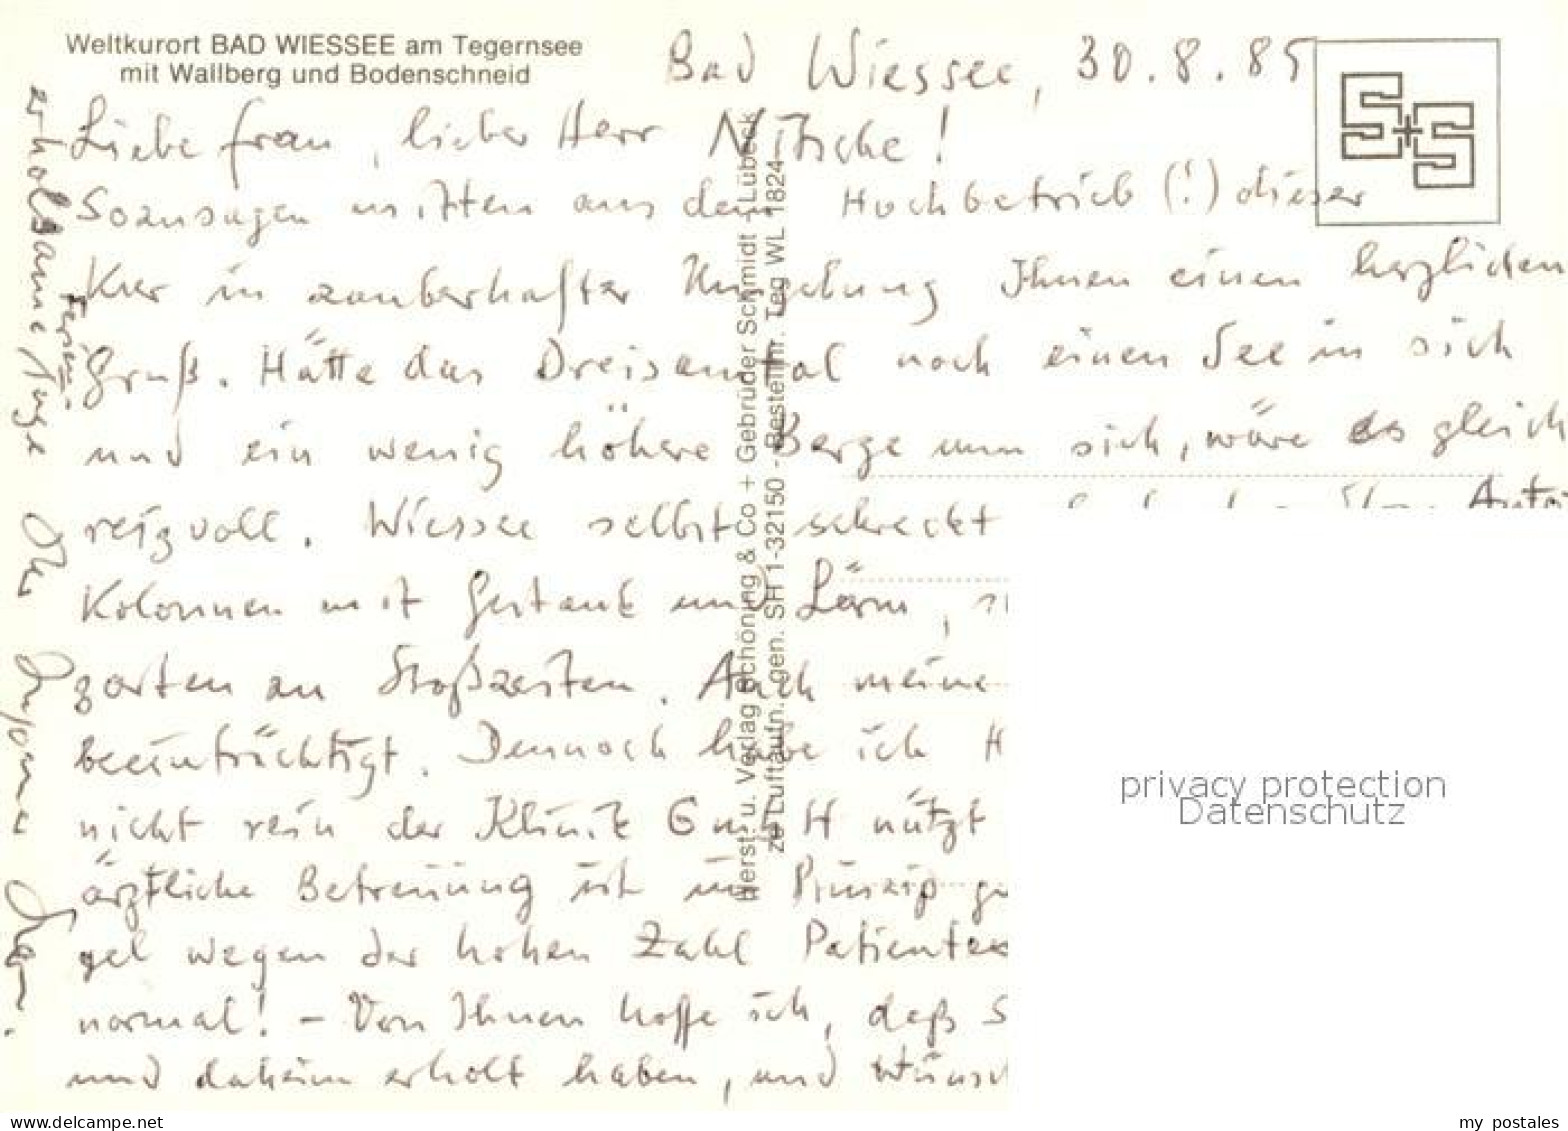 Weltkurort BAD WIESSEE am Tegernsee
mit Wallberg und Bodenschneid
Bad Wiessee, 30.8.85
S+S
Liebe Frau, lieber Herr Nitschke!
Sozusagen mitten aus dem Hochbetrieb (!) dieser
Kur in zauberhafter Umgebung Ihnen einen herzlichen
Gruß. Hätte das Dreisamtal noch einen See in sich
und ein wenig höhere Berge um sich, wäre es gleich
reizvoll. Wiessee selbst schreckt
Kolonnen mit Gestank und Lärm,
zarten an Stoßzeiten. Auch meine
beeinträchtigt. Dennoch habe ich H
nicht rein der Klinik GmbH nützt
ärztliche Betreuung ist im Prinzip
gel wegen der hohen Zahl Patienten
normal! – Von Ihnen hoffe ich, daß S
und daheim erholt haben, und wünsc
erholsame Tage
Ferien.
Herst. u. Verlag Schöning & Co + Gebrüder Schmidt · Lübeck
zu Luftaufn. gen. SH 1-32150 - Bestellnr. Teg WL 1824
privacy protection
Datenschutz
www.delcampe.net
my_postales